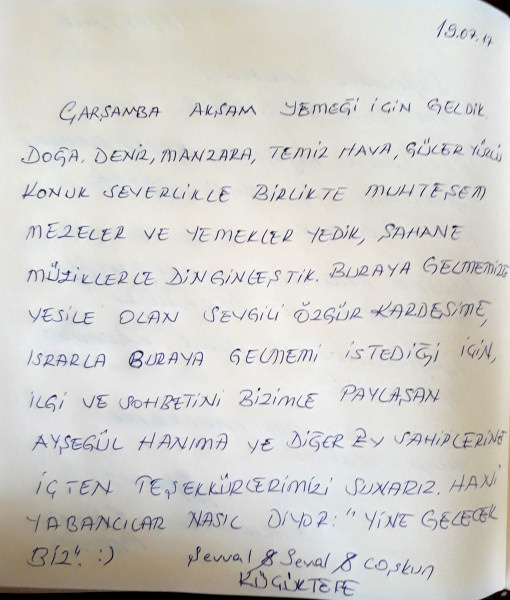 19.07.17
ÇARŞAMBA AKŞAM YEMEĞİ İÇİN GELDİK.
DOĞA, DENİZ, MANZARA, TEMİZ HAVA, GÜLER YÜZLÜ
KONUK SEVERLİKLE BİRLİKTE MUHTEŞEM
MEZELER VE YEMEKLER YEDİK, ŞAHANE
MÜZİKLERLE DİNGİNLEŞTİK. BURAYA GELMEMİZE
VESİLE OLAN SEVGİLİ ÖZGÜR KARDEŞİME,
ISRARLA BURAYA GELMEMİ İSTEDİĞİ İÇİN,
İLGİ VE SOHBETİNİ BİZİMLE PAYLAŞAN
AYŞEGÜL HANIMA VE DİĞER EV SAHİPLERİNE
İÇTEN TEŞEKKÜRLERİMİZİ SUNARIZ. HANİ
YABANCILAR NASIL DİYOR: "YİNE GELECEK
BİZ". :) Şevval & Seval & Coşkun
KÜÇÜKTEPE